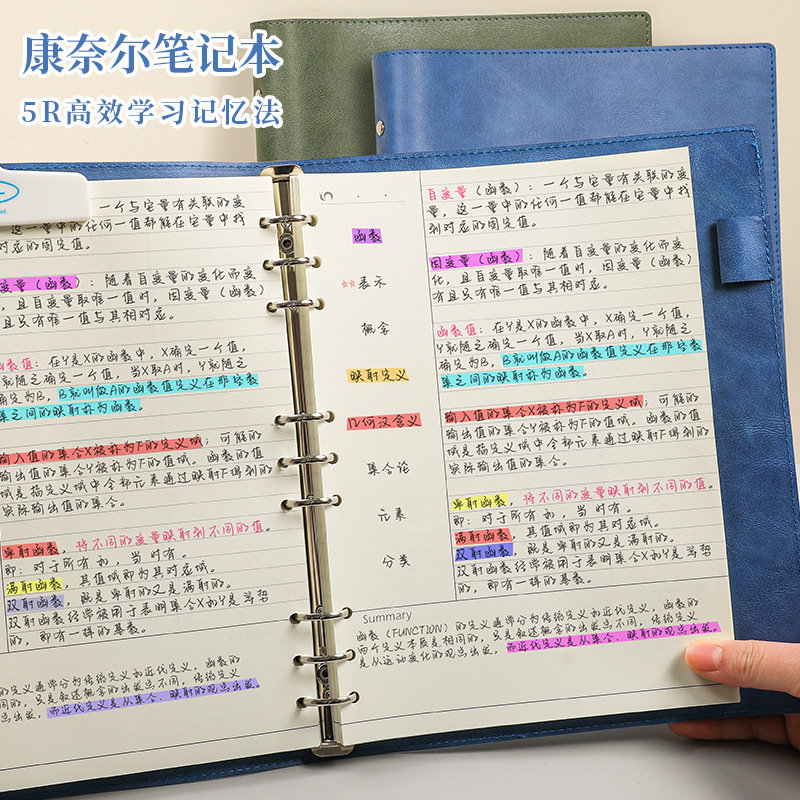 康奈尔笔记本
5R高效学习记忆法
一个与它量有关联的变
量，这一量中的任何一值都能在它量中找
对应的固定值。
变量（函数）：随着自变量的变化而变
，且自变量取唯一值时，因变量（函数）
且只有唯一值与其相对应。
函数值：在Y是X的函数中，X确定一个值，
Y就随之确定一个值，当X取A时，Y就随之
确定为B，B就叫做A的函数值定义在非空数
集之间的映射称为函数。
输入值的集合X被称为F的定义域；可能的
输出值的集合Y被称为F的值域。函数的值
域是指定义域中全部元素通过映射F得到的
实际输出值的集合。
单射函数，将不同的变量映射到不同的值。
即：对于所有和，当时有。
满射函数，其值域即为其对应域。
双射函数，既是单射的又是满射的。
双射函数经常被用于表明集合X和Y是等势
的，即有一样的基数。
的定义通常分为传统定义和近代定义，函数的
同的，只是叙述概念的出发点不同，传统定义
点出发，而近代定义是从集合、映射的观点出发。
5
函数
☆☆表示
概念
映射定义
几何汉含义
集合论
元素
分类
自变量（函数）：一个与它量有关联的变
量，这一量中的任何一值都能在它量中找
到对应的固定值。
因变量（函数）：随着自变量的变化而变
化，且自变量取唯一值时，因变量（函数）
有且只有唯一值与其相对应。
函数值：在Y是X的函数中，X确定一个值，
Y就随之确定一个值，当X取A时，Y就随之
确定为B，B就叫做A的函数值定义在非空数
集之间的映射称为函数。
输入值的集合X被称为F的定义域；可能的
输出值的集合Y被称为F的值域。函数的值
域是指定义域中全部元素通过映射F得到的
实际输出值的集合。
单射函数，将不同的变量映射到不同的值。
即：对于所有和，当时有。
满射函数，其值域即为其对应域。
双射函数，既是单射的又是满射的。
双射函数经常被用于表明集合X和Y是等势
的，即有一样的基数。
Summary
函数（FUNCTION）的定义通常分为传统定义和近代定义，函数的
两个定义本质是相同的，只是叙述概念的出发点不同，传统定义
是从运动变化的观点出发，而近代定义是从集合、映射的观点出发。